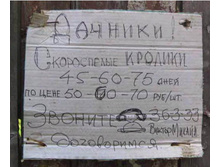 ДАЧНИКИ!
СКОРОСПЕЛЫЕ КРОЛИКИ
45-60-75 ДНЕЙ
ПО ЦЕНЕ 50-60-70 РУБ/ШТ.
ЗВОНИТЕ 363-33
Договоримся